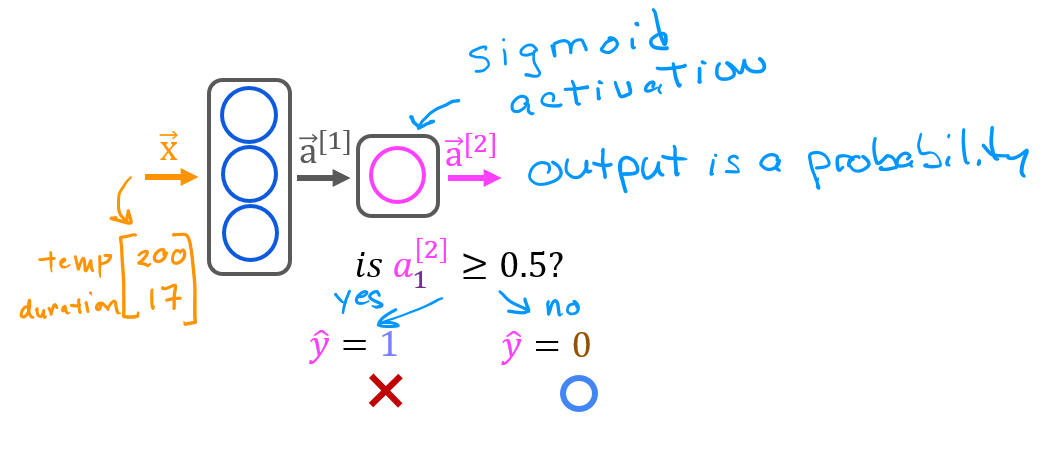 sigmoid
activation
x⃗
a⃗[1]
a⃗[2]
output is a probability
temp [200
duration 17]
is a₁[2] ≥ 0.5?
yes
no
ŷ = 1
ŷ = 0